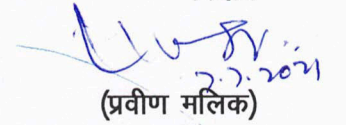 2.7.2021
(प्रवीण मलिक)